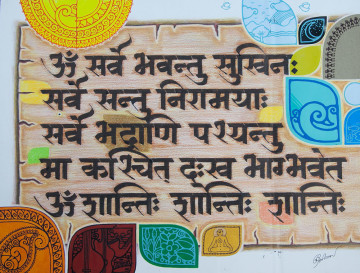 ॐ सर्वे भवन्तु सुखिनः
सर्वे सन्तु निरामयाः
सर्वे भद्राणि पश्यन्तु
मा कश्चित दुःख भाग्भवेत
ॐ शान्तिः शान्तिः शान्तिः